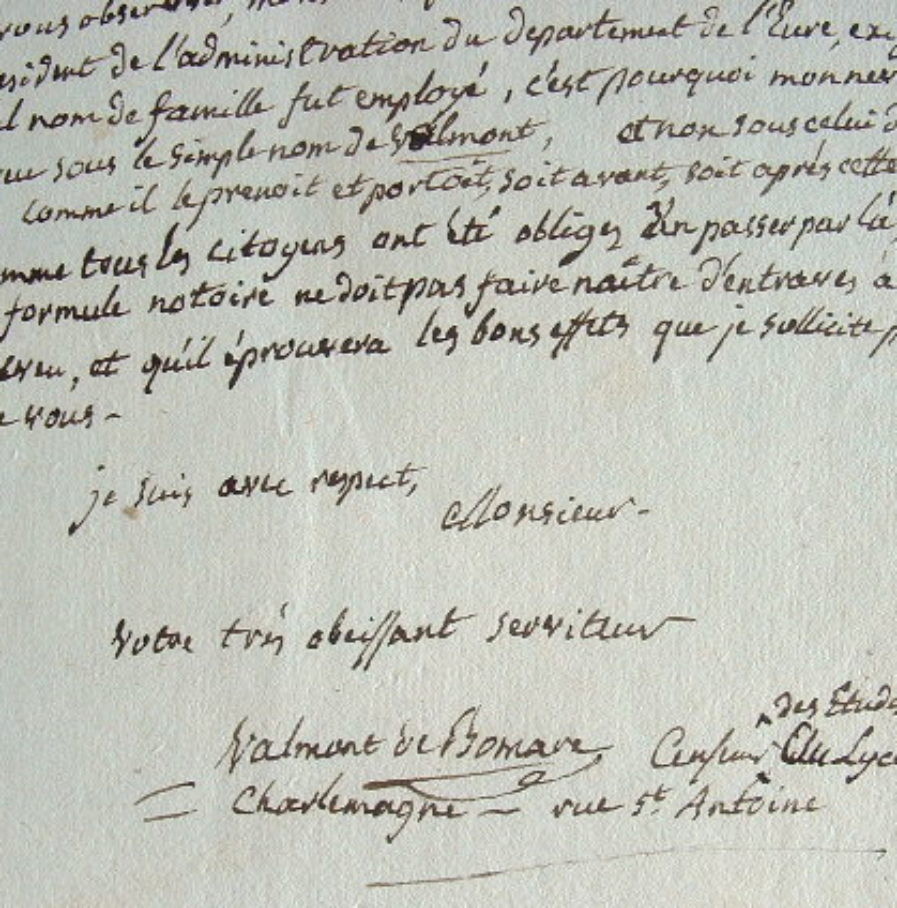 vous observer,
sident de l'administration du departement de l'Eure, exi
l nom de famille fut employé, c'est pourquoi mon nev
ue sous le simple nom de Valmont, et non sous celui d
comme il le prenoit et portoit, soit avant, soit après cette
mme tous les citoyens ont été obligez d'en passer par là,
formule notoire ne doit pas faire naître d'entraves à
eveu, et qu'il éprouvera les bons effets que je sollicite p
e vous -
je suis avec respect,
Monsieur -
Votre très obeissant serviteur
des Etude
Valmont de Bomare Censeur du Lyc
= Charlemagne - rue St Antoine